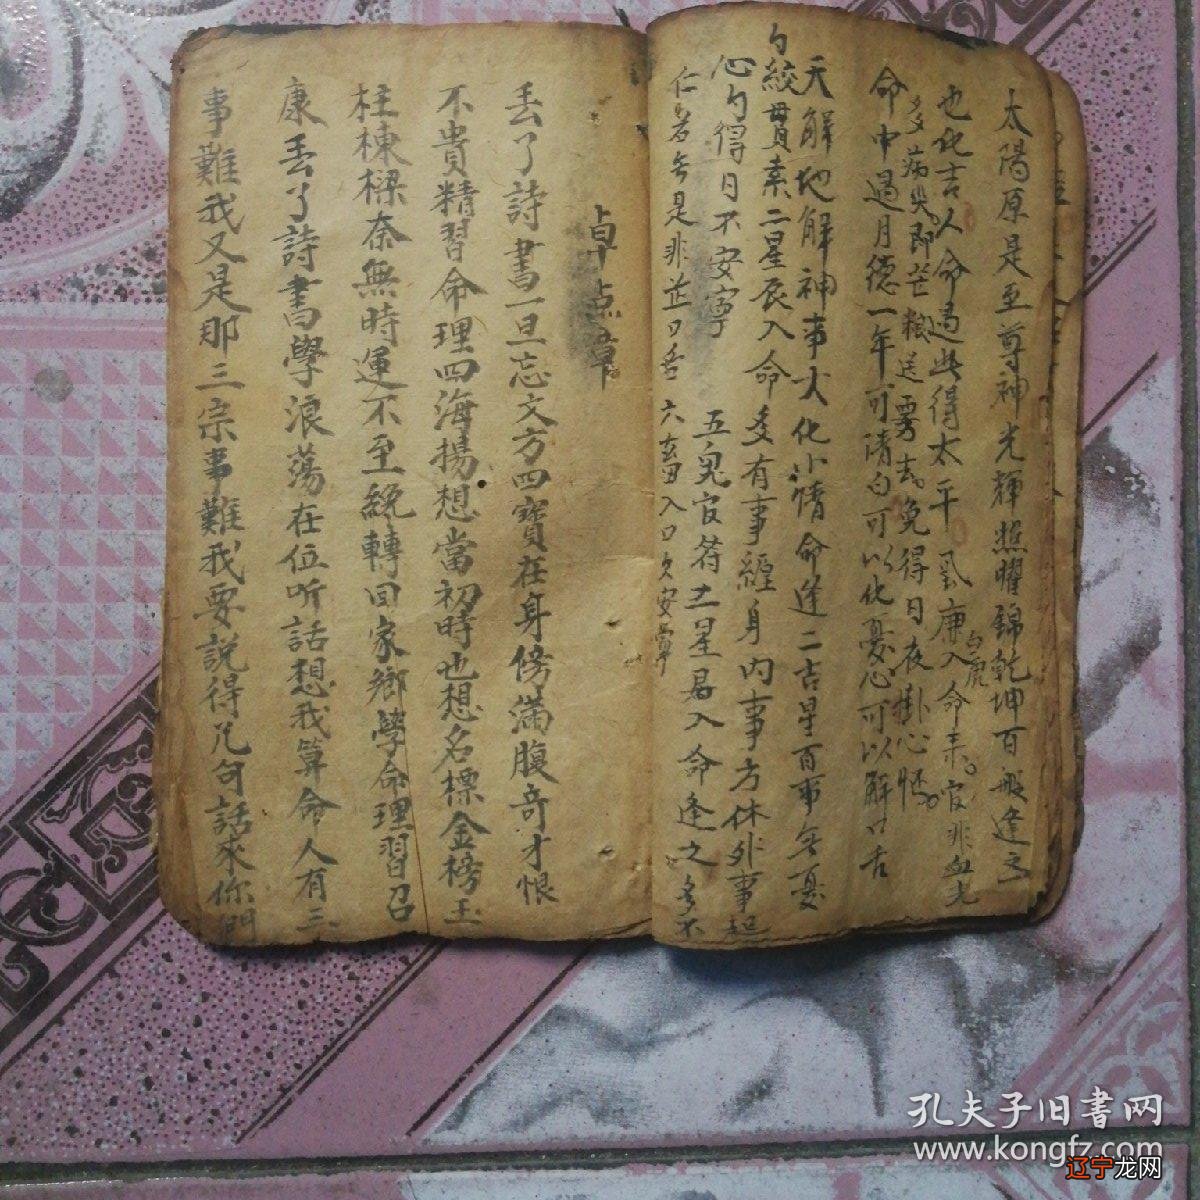 太陽原是至尊神光輝照曜錦乾坤百般逢之
也化吉人命遇此得太平 廉入命來。官非血光
白虎
多病災即芒 送 去。免得日夜掛心懷。
命中遇月德一年可清白可以化憂心可以解口舌
天解地解神事大化小情命逢二吉星百事無憂
勾絞貫索二星辰入命多有事纏身内事方休外事起
心勺得日不安寧 五鬼官符二星君入命逢之多不
仁 若無是非並口舌 六畜入口欠安寧
卓点章
丢了詩書一旦忘文方四寶在身傍滿腹奇才恨
不貴精習命理四海揚想當初時也想名標金榜玉
柱棟樑奈無時運不至絻轉回家鄉學命理習召
康丢了詩書學浪蕩在位听話想我算命人有三
事難我又是那三宗事難我要説得几句話來你們
孔夫子旧書网
www.kongfz.com
辽宁龙网